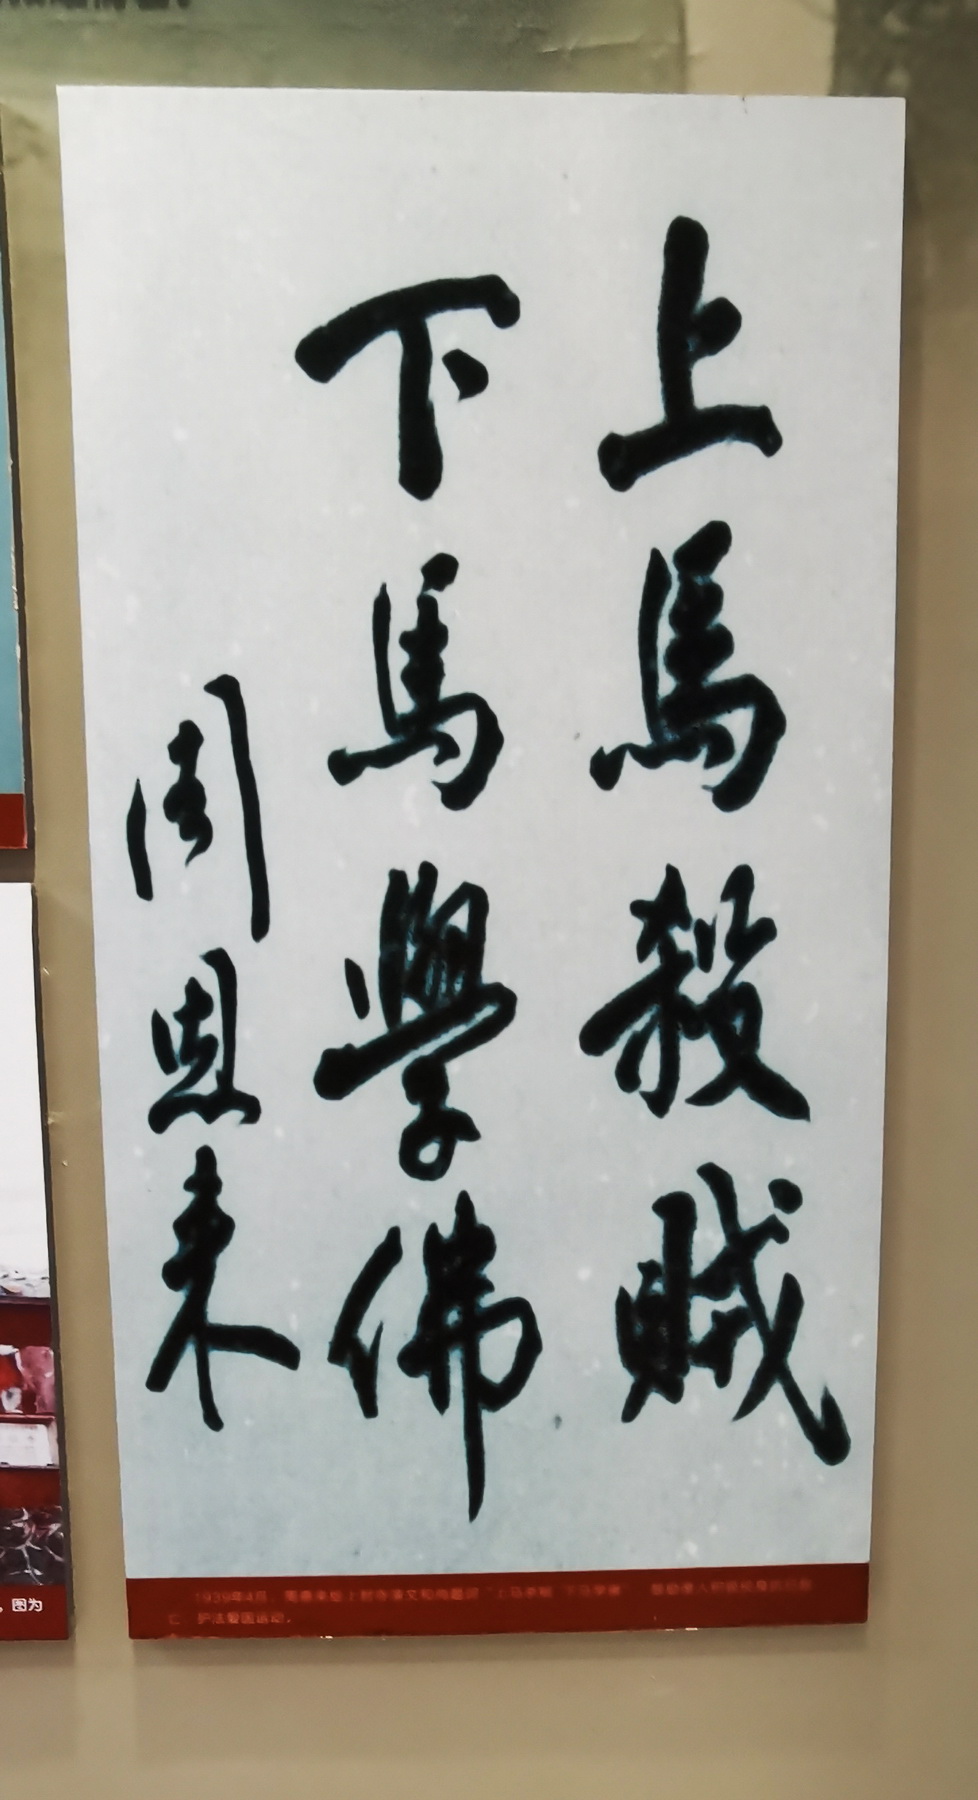 上馬殺賊
下馬學佛
周恩来
1939年4月，周恩来给上封寺演文和尚题词“上马杀贼 下马学佛”
护法爱国运动。
，图为